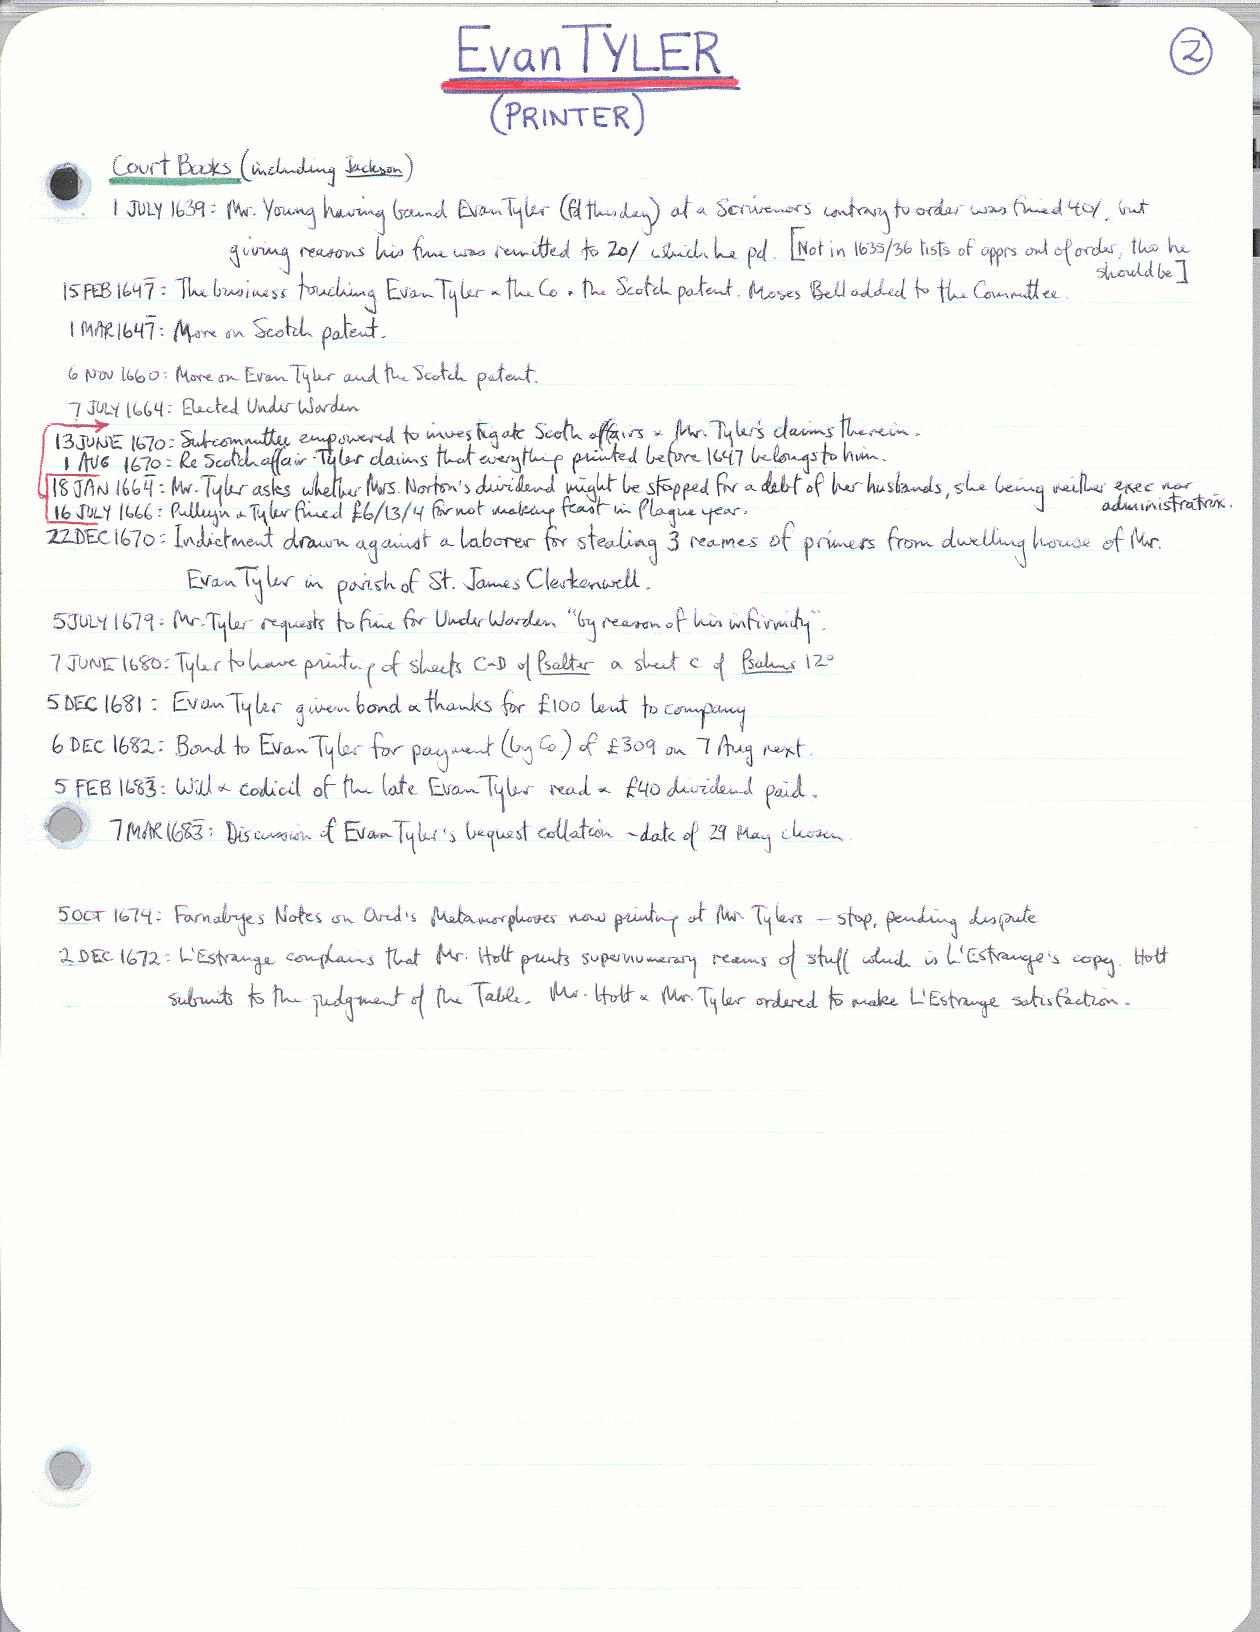 Evan TYLER
2
(PRINTER)
Court Books (including Jackson)
1 JULY 1639: Mr. Young having bound Evan Tyler (fd this day) at a Scriveners contrary to order was fined 40/, but
giving reasons his fine was remitted to 20/ which he pd. [Not in 1635/36 lists of apprs out of order, tho he
should be]
15 FEB 1647: The business touching Evan Tyler & the Co. & the Scotch patent. Moses Bell added to the Committee.
1 MAR 1647: More on Scotch patent.
6 NOV 1660: More on Evan Tyler and the Scotch patent.
7 JULY 1664: Elected Under Warden
13 JUNE 1670: Subcommittee empowered to investigate Scoth affairs & Mr. Tyler's claims therein.
1 AUG 1670: Re Scotch affair: Tyler claims that everything printed before 1647 belongs to him.
18 JAN 1664: Mr. Tyler asks whether Mrs. Norton's dividend might be stopped for a debt of her husbands, she being neither exec nor
administratrix.
16 JULY 1666: Pulleyn & Tyler fined £6/13/4 for not making feast in Plague year.
22 DEC 1670: Indictment drawn against a laborer for stealing 3 reames of primers from dwelling house of Mr.
Evan Tyler in parish of St. James Clerkenwell.
5 JULY 1679: Mr. Tyler requests to fine for Under Warden "by reason of his infirmity".
7 JUNE 1680: Tyler to have printing of sheets C-D of Psalter & sheet C of Psalms 12°
5 DEC 1681: Evan Tyler given bond & thanks for £100 lent to company
6 DEC 1682: Bond to Evan Tyler for payment (by Co.) of £309 on 7 Aug next.
5 FEB 1683: Will & codicil of the late Evan Tyler read & £40 dividend paid.
7 MAR 1683: Discussion of Evan Tyler's bequest collation - date of 29 May chosen.
5 OCT 1674: Farnabyes Notes on Ovid's Metamorphoses now printing at Mr. Tylers - stop, pending dispute
2 DEC 1672: L'Estrange complains that Mr. Holt prints supernumerary reams of stuff which is L'Estrange's copy. Holt
submits to the judgment of the Table. Mr. Holt & Mr. Tyler ordered to make L'Estrange satisfaction.